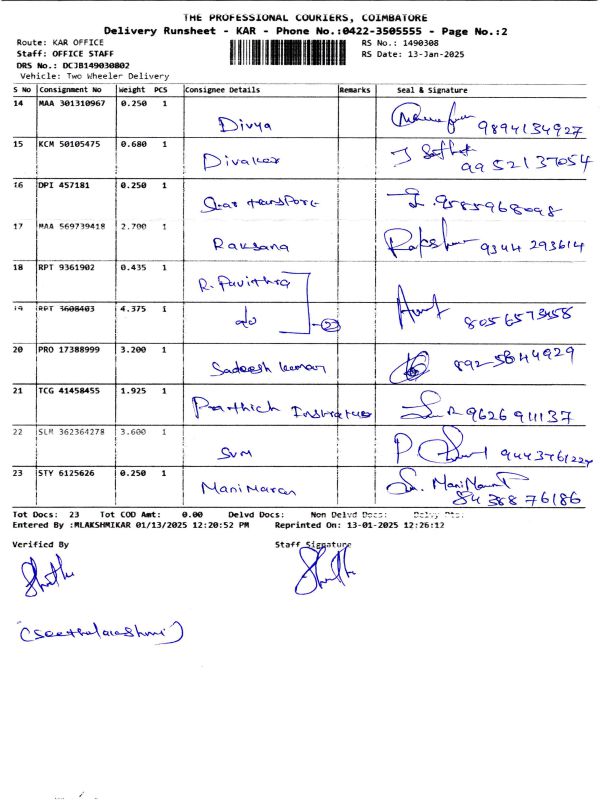 THE PROFESSIONAL COURIERS, COIMBATORE
Delivery Runsheet - KAR - Phone No.:0422-3505555 - Page No.:2
Route: KAR OFFICE RS No.: 1490308
Staff: OFFICE STAFF RS Date: 13-Jan-2025
DRS No.: DCJB149030802
Vehicle: Two Wheeler Delivery
S No Consignment No Weight PCS Consignee Details Remarks Seal & Signature
14 MAA 301310967 0.250 1
Divya 9894134927
15 KCM 50105475 0.680 1
Divakar 9952137054
16 DPI 457181 0.250 1
Star transport 9585968098
17 MAA 569739418 2.700 1
Raksana 9344 293614
18 RPT 9361902 0.435 1
R. Pavithra
19 RPT 3608403 4.375 1
do 2 8056573458
20 PRO 17388999 3.200 1
Sadeesh kumar 8925844929
21 TCG 41458455 1.925 1
9626 911137
22 SLM 362364278 3.600 1
SVM
23 STY 6125626 0.250 1
Manimaran 84388 76186
Tot Docs: 23 Tot COD Amt: 0.00 Delvd Docs: Non Delvd Docs:
Entered By :MLAKSHMIKAR 01/13/2025 12:20:52 PM Reprinted On: 13-01-2025 12:26:12
Verified By Staff Signature
(Seethalakshmi)